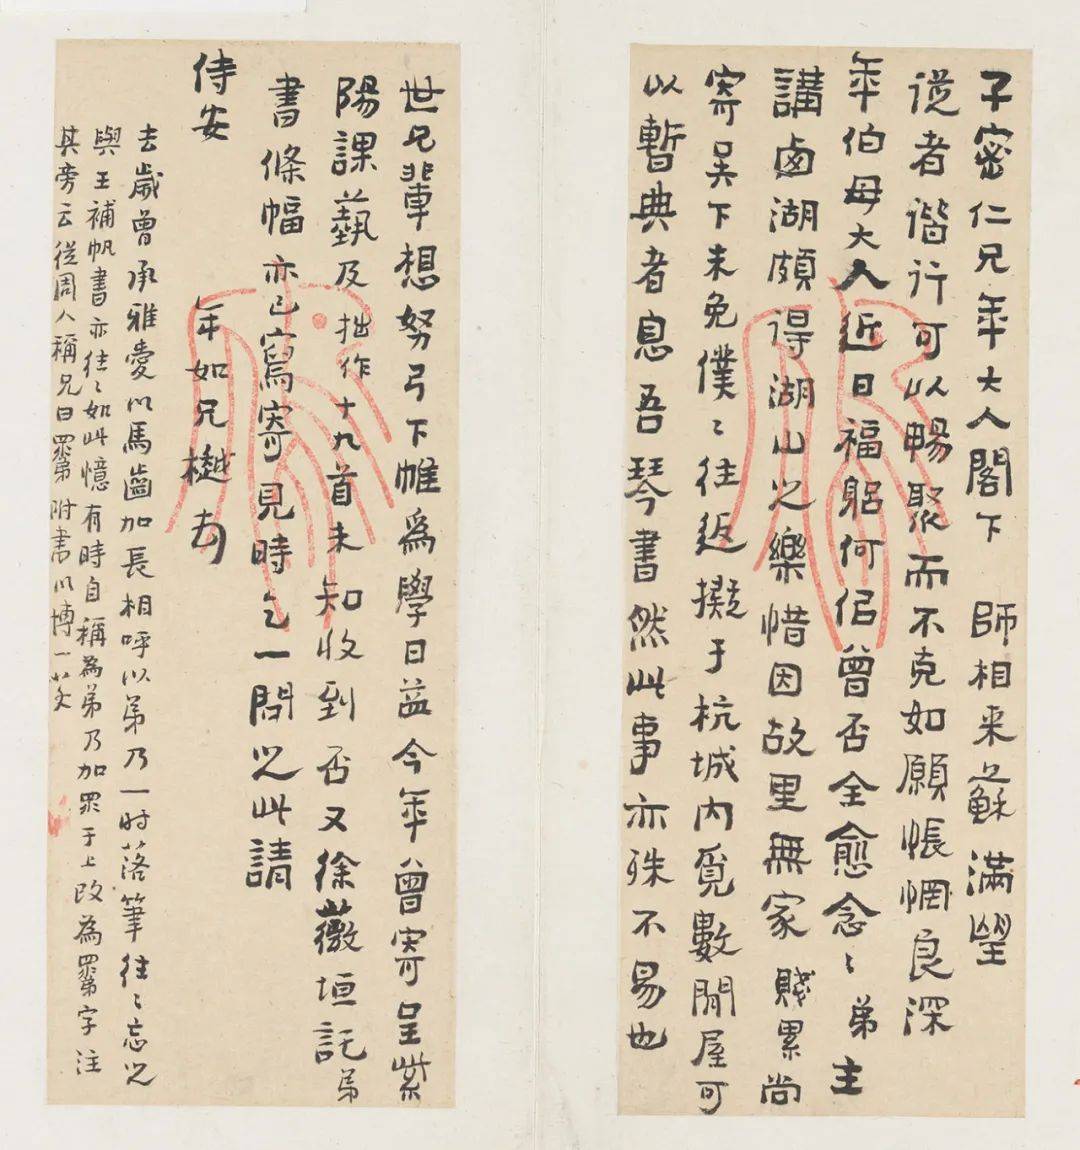 子密仁兄年大人閣下 師相来蘇 滿望
從者谐行可以暢聚而不克如願悵惘良深
年伯母大人近日福躬何佀曾否全愈念〻弟主
講卥湖頗得湖山之樂惜因故里無家賤累尚
寄吴下未免僕〻往返擬于杭城内覓數閒屋可
以暫典者息吾琴書然此事亦殊不易也
世兄輩想努力下帷為學日益今年曾寄呈紫
陽課藝及拙作十九首未知收到否又徐薇垣託弟
書條幅亦已寫寄見時乞一問之此請
侍安
年如兄樾頓
去歲曾承雅愛以馬齒加長相呼以弟乃一時落筆往〻忘之
與王補帆書亦往〻如此憶有時自稱為弟乃加眔于上改為𥊽字注
其旁云從周人稱兄曰𥊽附書以博一笑